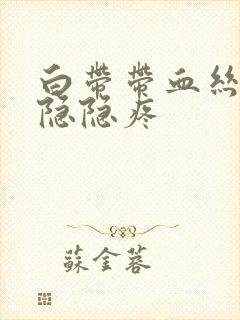 白帶帶血絲
隐隐疼
蘇金蓉